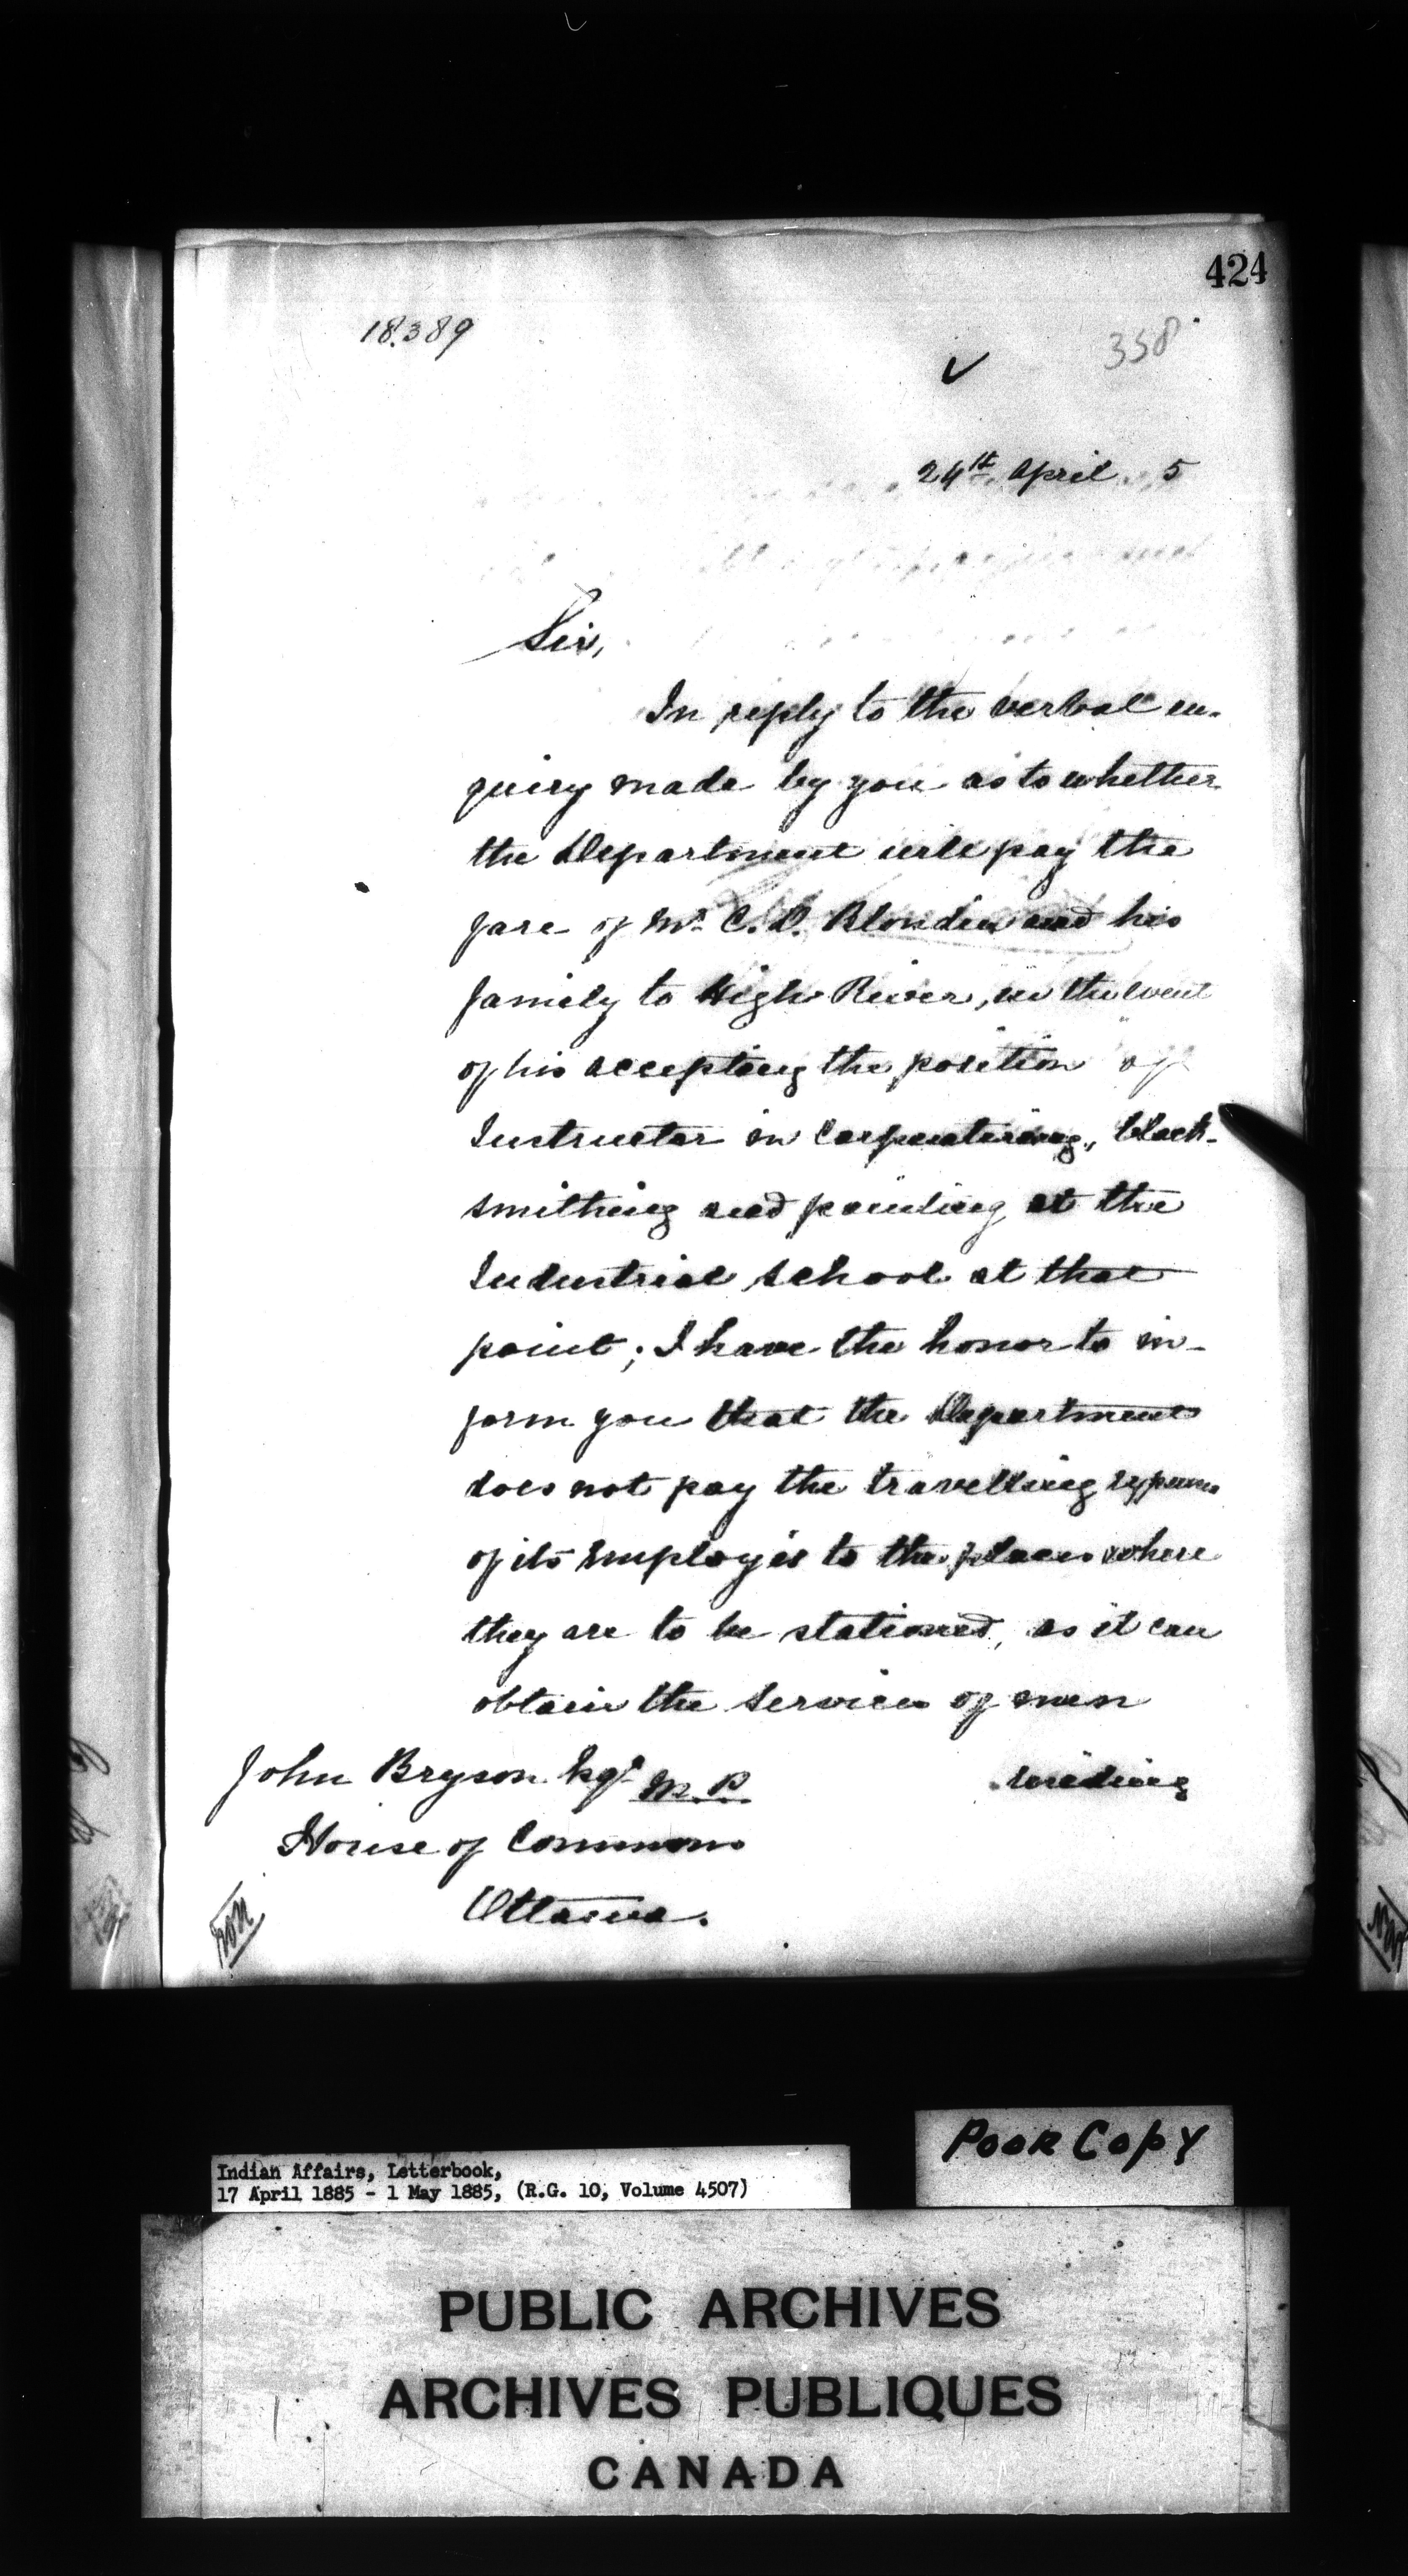 424
18.389
358
24th April 5
Sir,
In reply to the verbal en-
quiry made by you as to whether
the Department will pay the
fare of Mr. C. D. Blondin and his
family to High River, in the event
of his accepting the position of
Instructor in Carpentering, black-
smithing and painting at the
Industrial School at that
point; I have the honor to in-
form you that the Department
does not pay the travelling expenses
of its employés to the places where
they are to be stationed, as it can
obtain the services of men
residing
John Bryson Esqr. M.P.
House of Commons
Ottawa.
Poor Copy
Indian Affairs, Letterbook,
17 April 1885 - 1 May 1885, (R.G. 10, Volume 4507)
PUBLIC ARCHIVES
ARCHIVES PUBLIQUES
CANADA